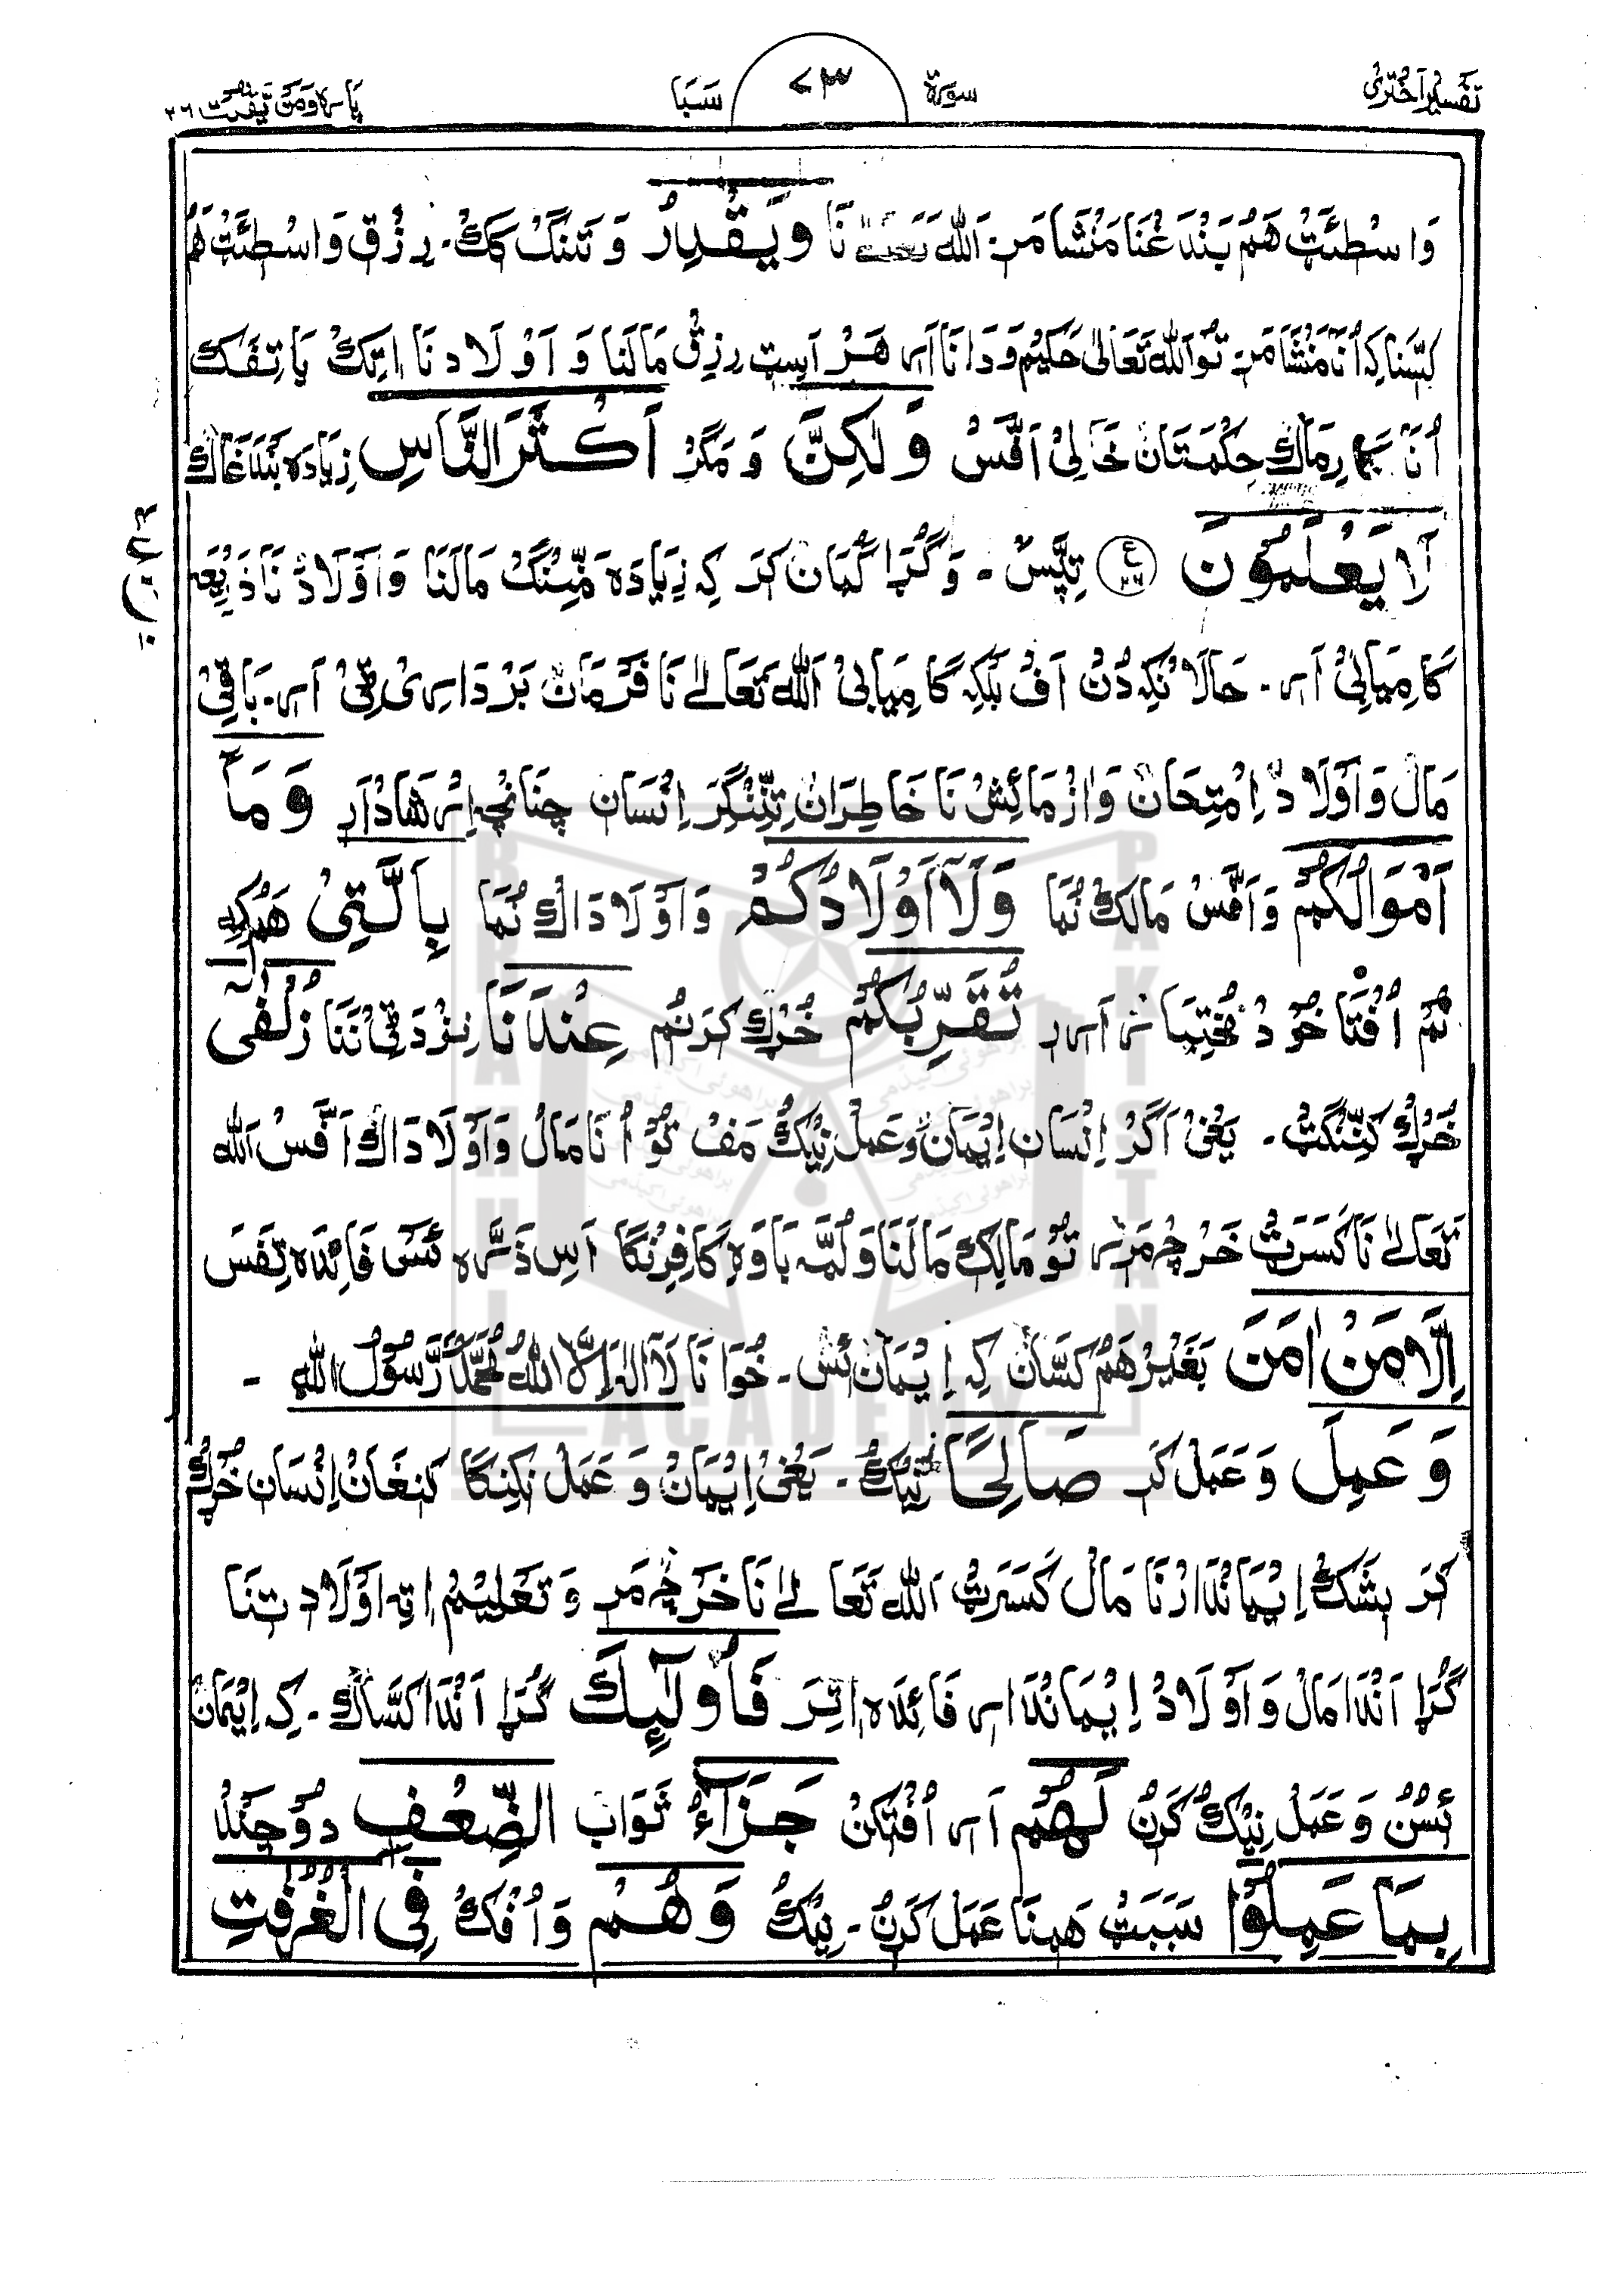 تفسیر اختری
سورة
۷۳
سَبَا
پاره وَمَنْ یَّقْنُتْ ۲۲
وَاسْطِئَتْ هَمُ بَنْدَغْنَا مَنْشَا مَرے اَللہ تَعَالےٰ نَا وَیَقْدِرُ وَ تَنگْ کَکْ۔ رِزْق وَاسْطِئَتْ هَمُ
کَسَّنَا کِہ اُنَا مَنْشَا مَرے تُو اَللہ تَعَالیٰ حَکِیْم وَ دَانَا اَرے هَرْ اَسِٹ رِزْق مَالَنَا وَ اَوْلَادنَا اِتِکْ یَا تِفَک
اُنَا رِمَاکْ حِکْمَتَان خَالِیْ اَفَّسْ وَلٰکِنَّ وَ مَگَرْ اَکْثَرَ النَّاسِ زِیَادَہ بَنْدَغَاکْ
لَا یَعْلَمُوْنَ تِپَّسْ ۔ وَ گُڑَا گُمَان کَرَ کِہ زِیَادَہ مَنِّنْگ مَالَنَا وَ اَوْلَادْ نَا ذَرِیْعَہ
کَامِیَابِیْ اَرے ۔ حَالَانْکِہ دُنْ اَفْ بَلْکِہ کَامِیَابِیْ اَللہ تَعَالےٰ نَا فَرْمَان بَرْدَارِیْ ٹِیْ اَرے ۔ بَاقِیْ
مَالْ وَ اَوْلَادْ اِمْتِحَان وَ اَزْمَائِشْ نَا خَاطِرَان تِنِّنْگِرَ اِنْسَان چُنَانْچِہ اِرْشَادْ اَرے وَمَآ
اَمْوَالُکُمْ وَ اَفَّسْ مَالَکْ نُمَا وَلَآ اَوْلَادُکُمْ وَ اَوْلَادَاکْ نُمَا بِالَّتِیْ هَرْکِہ
نُمْ اُفْتَا خُوْدْ مُخْتِیَار اَرے تُقَرِّبُکُمْ خُڑْکْ کَرَ نُمْ عِنْدَنَا نِزْدٹِیْ نَنَا زُلْفٰی
خُڑْکْ کَنِّنْگَٹْ ۔ یَعْنِیْ اَگَرْ اِنْسَان اِیْمَان وَ عَمَلْ نِیْکْ مَفْ تُوْ اُنَا مَالْ وَ اَوْلَادَاکْ اَفَّسْ اَللہ
تَعَالےٰ نَا کَسَرَٹْ خَرْچْ مَرے تُوْ مَالِکْ مَالَنَا وَلُمَّہ بَاوَہ کَافِرْنَگَا اَسِ ذَرَّہ ئَسْ فَائِدَہ تِفَسْ
اِلَّا مَنْ اٰمَنَ بَغَیْرْ هَمْ کَسَّانْ کِہ اِیْمَان ئِسْ ۔ خُوَانَا لَآ اِلٰہَ اِلَّا اللہُ مُحَمَّدٌ رَّسُوْلُ اللہِ ۔
وَ عَمِلَ وَ عَمَلْ کَرے صَالِحًا نِیْکْ ۔ یَعْنِیْ اِیْمَانْ وَ عَمَلْ نِکِنَگَا کَنِغَانْ اِنْسَان خُڑْکْ
کَرَ بِشَکْ اِیْمَانْدَارْنَا مَالْ کَسَرَٹْ اَللہ تَعَالےٰ نَا خَرْچْ مَرے وَ تَعْلِیْمْ اِتِہ اَوْلَادِ تِنَا
گُڑَا اَنْدَا مَالْ وَ اَوْلَادْ اِیْمَانْدَارے فَائِدَہ اِتِرَ فَاُولٰٓئِکَ گُڑَا اَنْدَا کَسَّاکْ ۔ کِہ اِیْمَانْ
ئِسُنْ وَ عَمَلْ نِیْکْ کَرُنْ لَهُمْ اَرے اُفْتِکِنْ جَزَآءُ ثَوَابْ الضِّعْفِ دُوْچَنْدْ
بِمَا عَمِلُوْا سَبَبَٹْ هَمنَا عَمَل کَرُنْ ۔ نِیْکْ وَهُمْ وَ اُفْکْ فِی الْغُرُفٰتِ